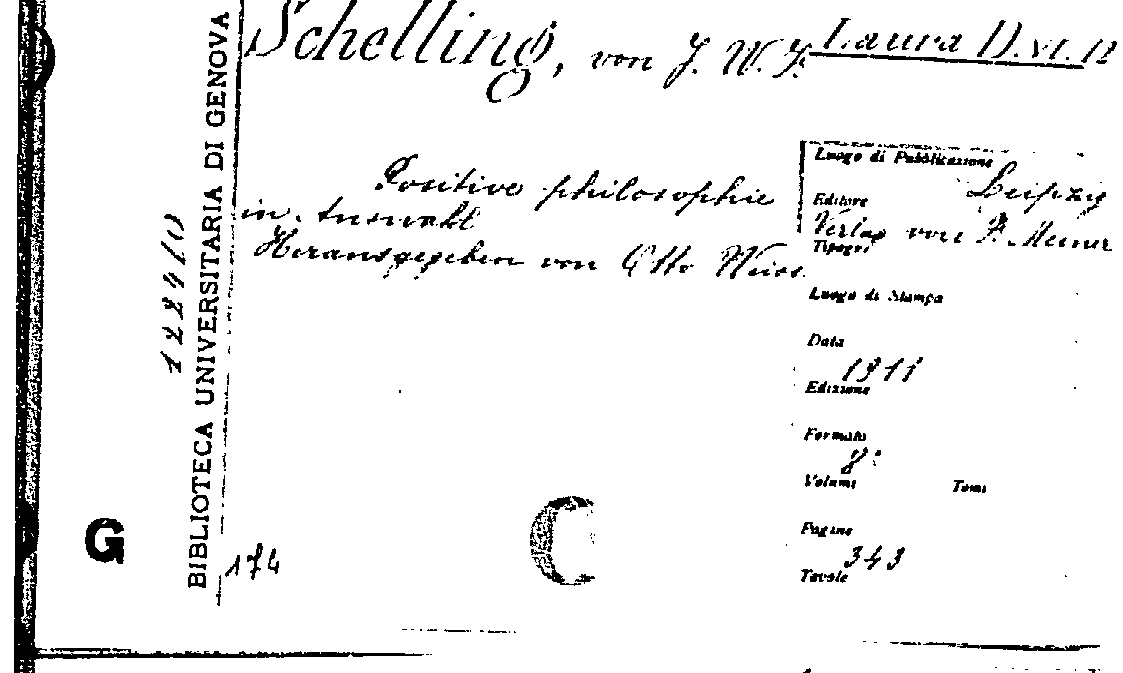 Schelling, von J. W. F.
Laura D. VI. 12
Positive philosophie
in Auswahl
Herausgegeben von Otto Weiss
Luogo di Pubblicazione
Leipzig
Editore
Verlag von F. Meiner
Tipogr
Luogo di Stampa
Data
1911
Edizione
Formato
8°
Volumi Tomi
Pagine
343
Tavole
BIBLIOTECA UNIVERSITARIA DI GENOVA
174
G
C